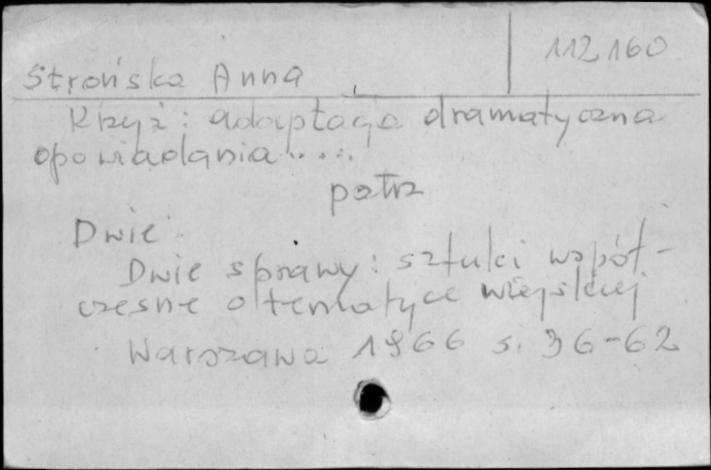 112160
Strońska Anna
Krzyż: adaptacja dramatyczna
opowiadania.....
patrz
Dwie
Dwie sprawy: sztuki współ-
czesne o tematyce wiejskiej
Warszawa 1966 s. 36-62